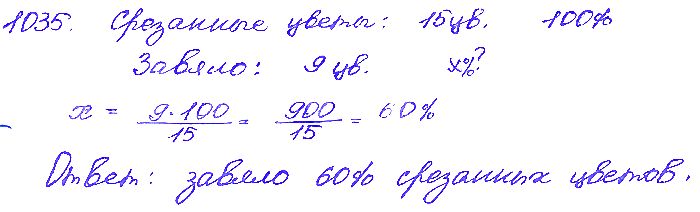 1035. Срезанные цветы: 15цв. 100%
Завяло: 9 цв. x%?
x = 9·100/15 = 900/15 = 60%
Ответ: завяло 60% срезанных цветов.